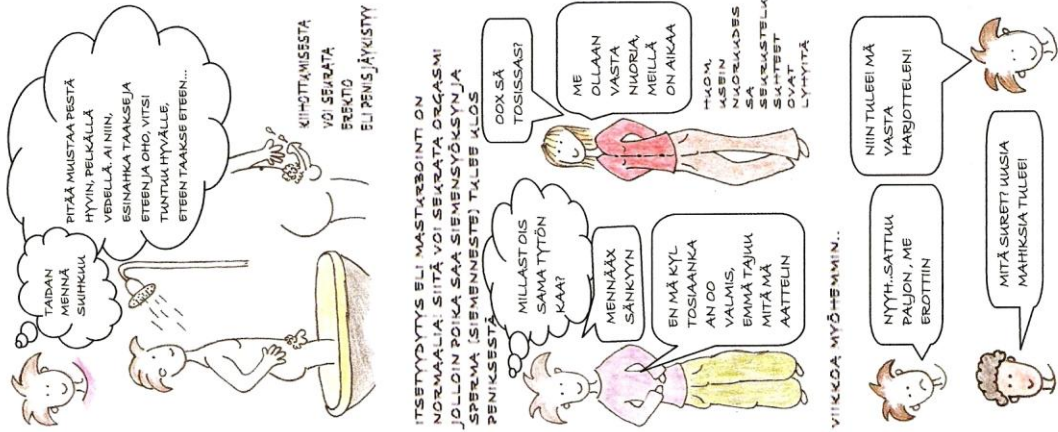 TAIDAN
MENNÄ
SUIHKUU
PITÄÄ MUISTAA PESTÄ
HYVIN, PELKÄLLÄ
VEDELLÄ. AI NIIN,
ESINAHKA TAAKSEJA
ETEENJA OHO, VITSI
TUNTUU HYVÄLLE,
ETEEN TAAKSE ETEEN...
KIIHOTTUMISESTA
VOI SEURATA
EREKTIO
ELI PENIS JÄYKISTYY
ITSETYYDYTYS ELI MASTURBOINTI ON
NORMAALIA. SIITÄ VOI SEURATA ORGASMI
JOLLOIN POIKA SAA SIEMENSYÖKSYN JA
SPERMA (SIEMENNESTE) TULEE ULOS
PENIKSESTÄ
MILLAST OIS
SAMA TYTÖN
KAA?
MENNÄÄX
SÄNKYYN
OOX SÄ
TOSISSAS?
EN MÄ KYL
TOSIAANKA
AN OO
VALMIS,
EMMÄ TAJUU
MITÄ MÄ
AATTELIN
ME
OLLAAN
VASTA
NUORIA,
MEILLÄ
ON AIKAA
HUOM,
USEIN
NUORUUDES
SA
SEURUSTELU
SUHTEET
OVAT
LYHYITÄ
VIIKKOA MYÖHEMMIN..
NYYH..SATTUU
PALJON, ME
EROTTIIN
NIIN TULEE! MÄ
VASTA
HARJOTTELEN!
MITÄ SURET? UUSIA
MAHIKSIA TULEE!